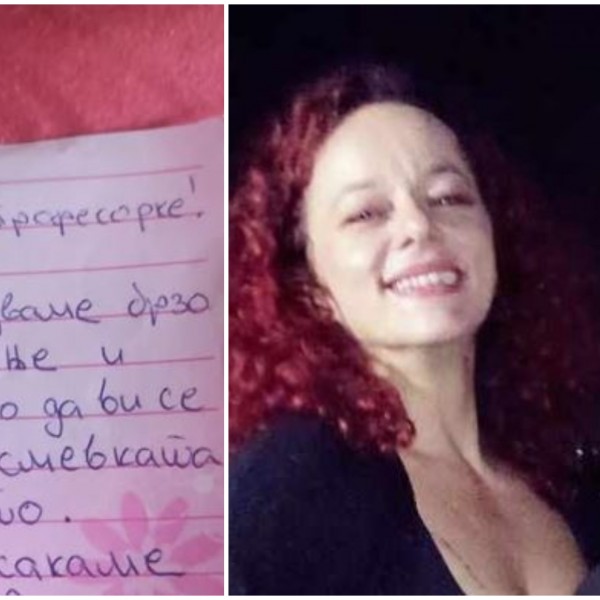 професорке!
ваме брзо
ње и
о да ви се
смевката
сакаме